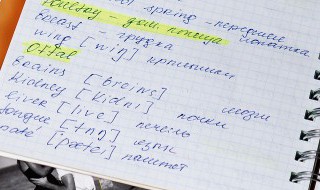 spring - передняя лопатка
poultry - дом. птица
breast - грудка
wing [wiŋ] крылышки
Offal
Brains [breins] мозги
Kidney [kidni] почки
liver [live] печень
tongue [tʌŋ] язык
pate [pætei] паштет